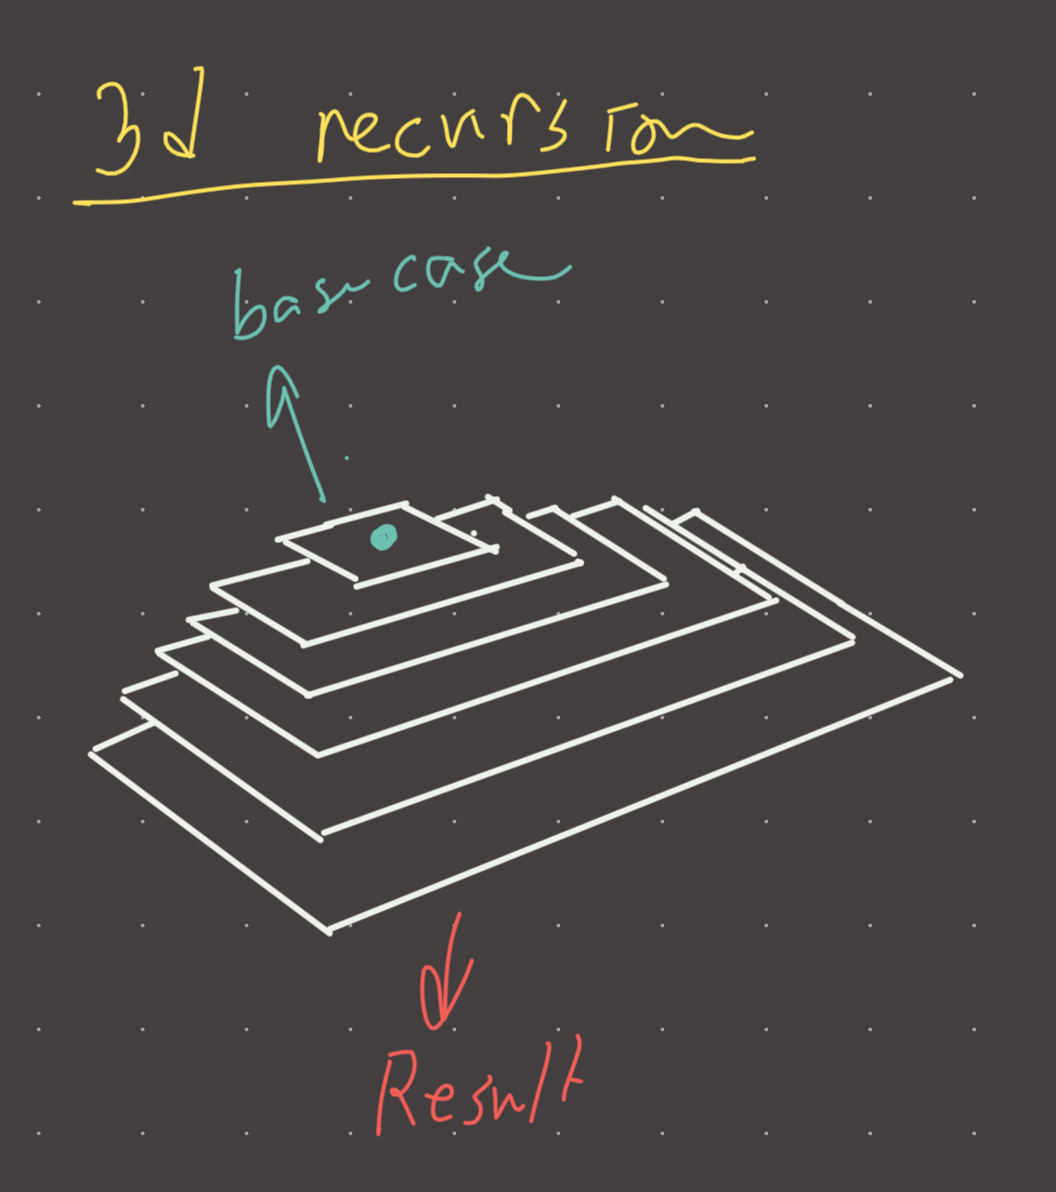 3d recursion
base case
Result